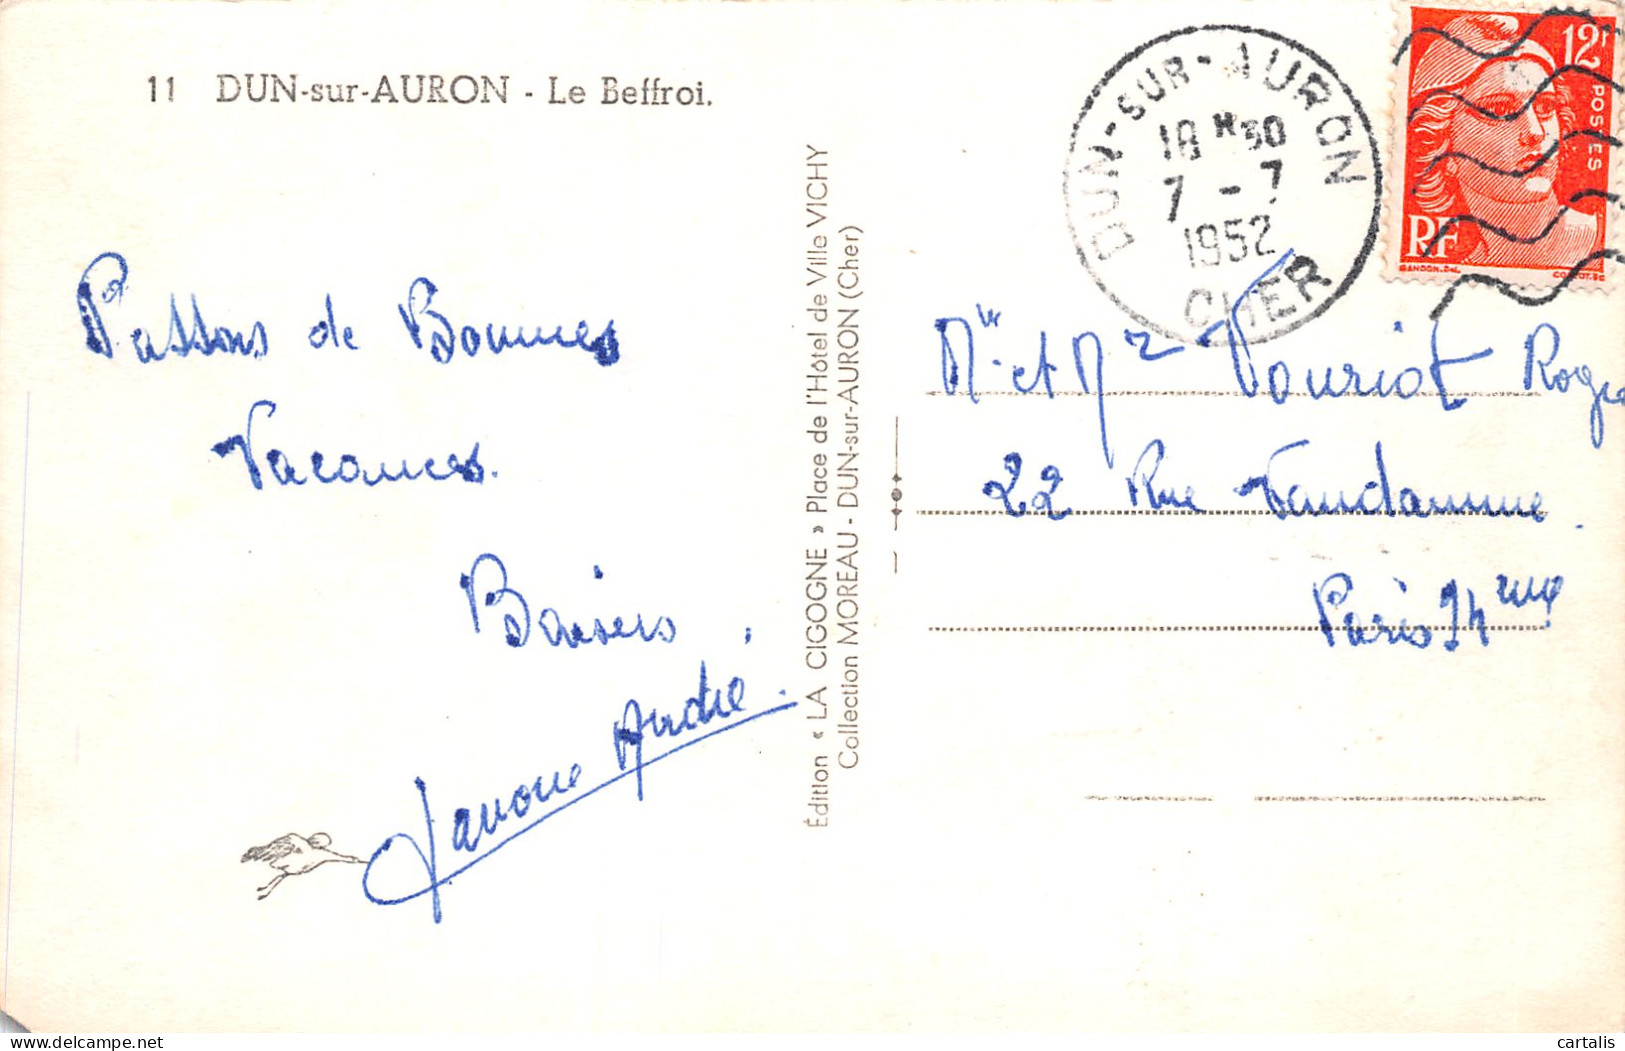 11 DUN-sur-AURON - Le Beffroi.
Passons de Bonnes
Vacances.
Baisers.
André.
Édition « LA CIGOGNE » Place de l'Hôtel de Ville VICHY
Collection MOREAU - DUN-sur-AURON (Cher)
DUN-SUR-AURON
18 H 30
7 - 7
1952
CHER
12F
POSTES
RF
GANDON.DEL.
Mr et Mme Pouriot Roger
22 Rue Vandamme.
Paris 14eme
cartalis